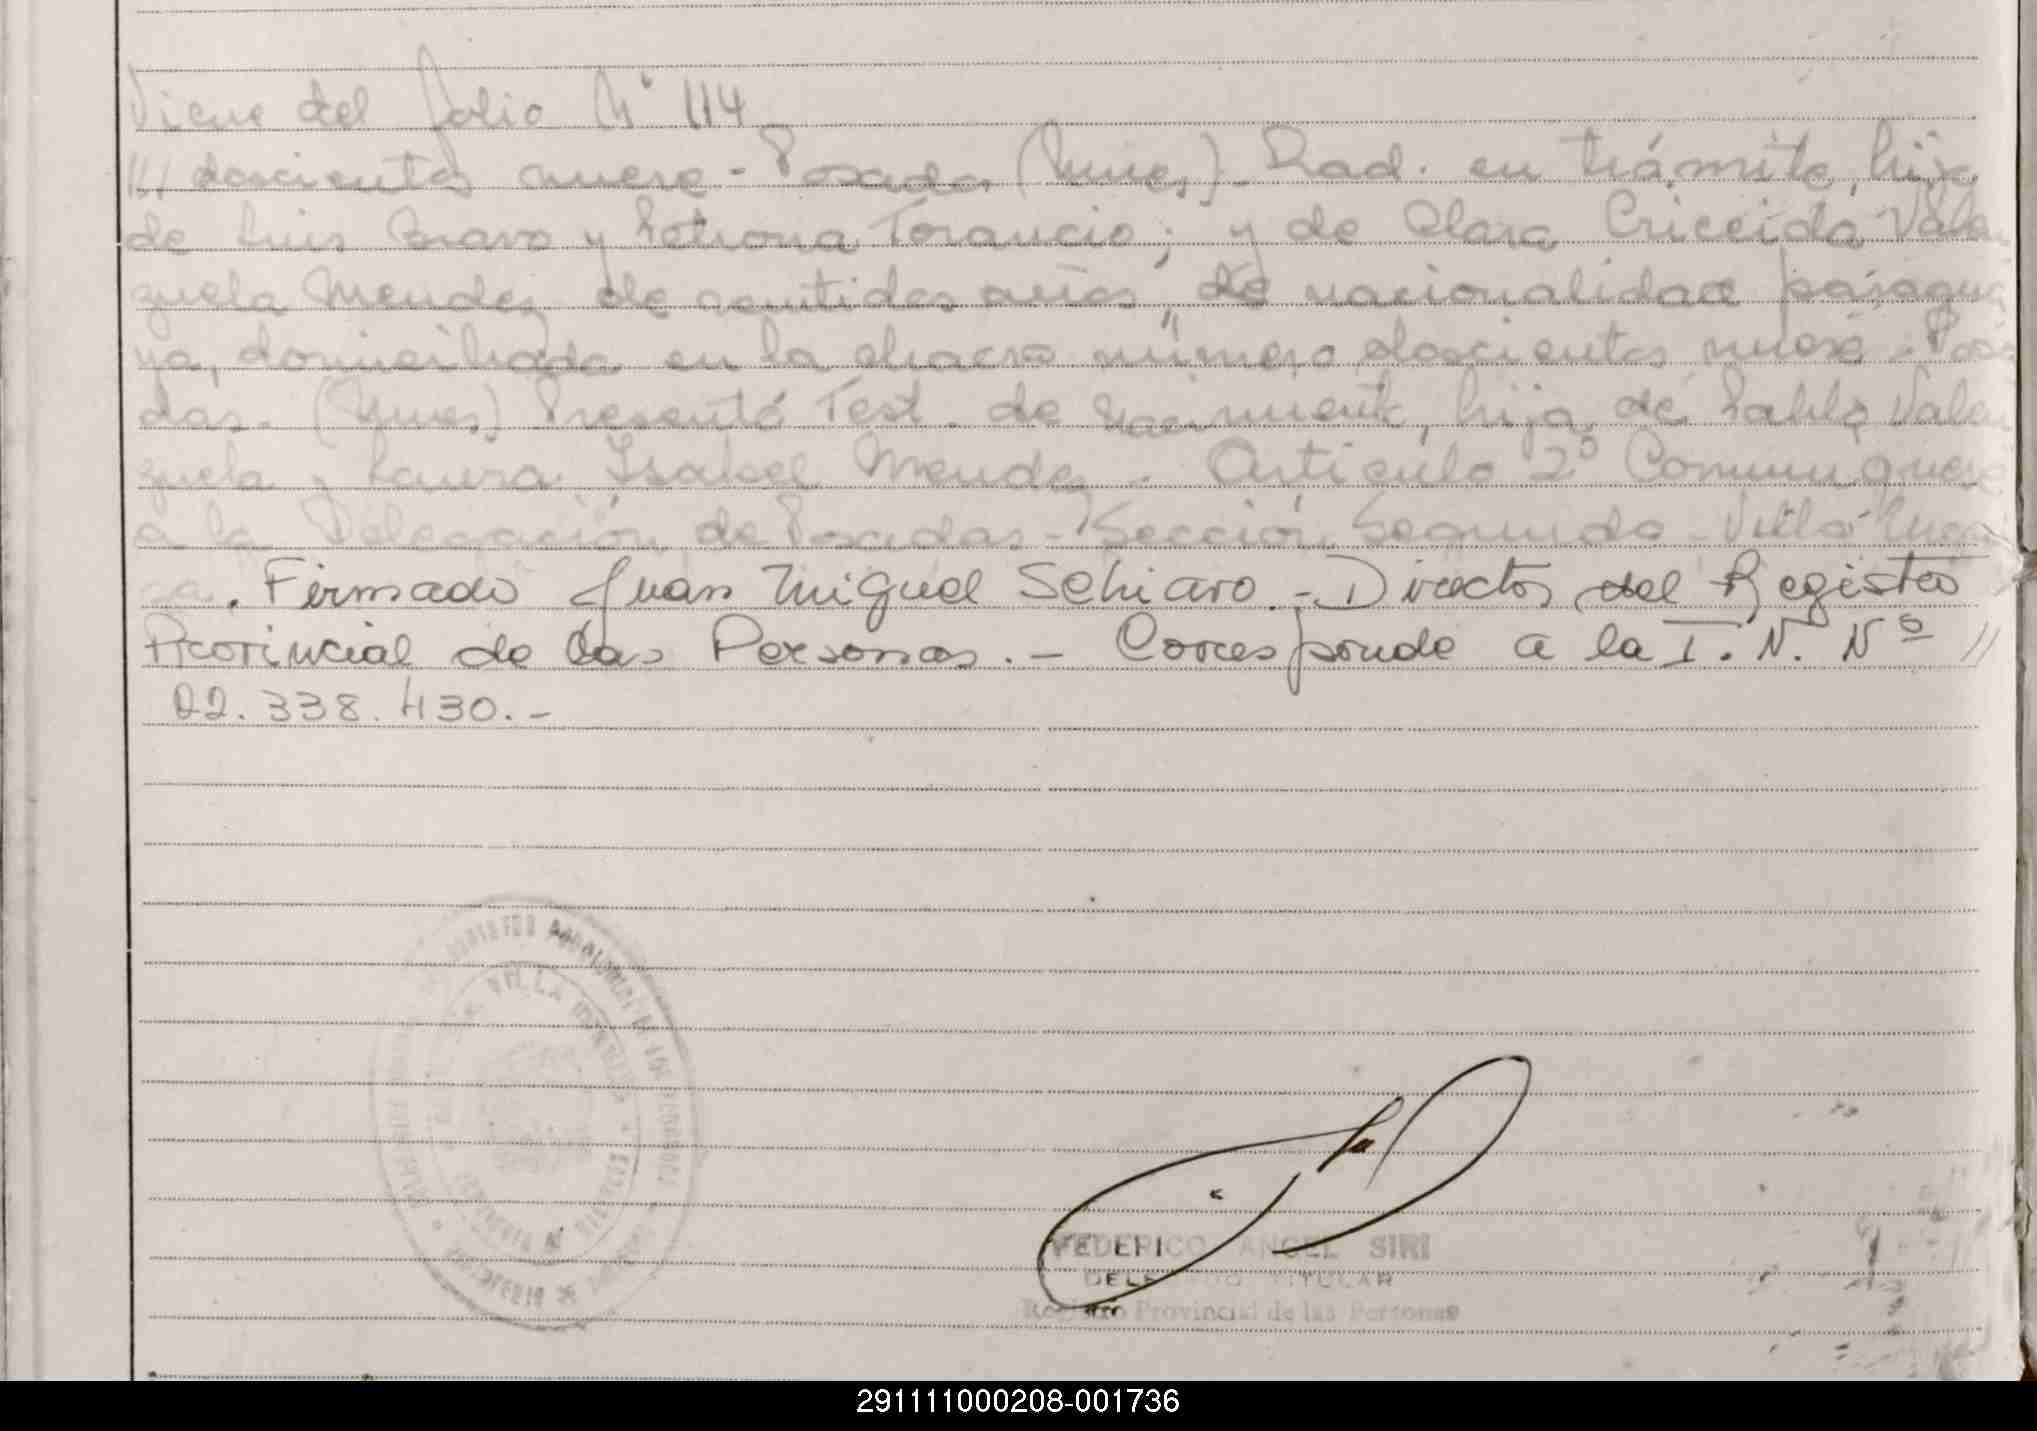 Viene del folio Nº 114
/// doscientos nueve - Posadas (Mnes) - Rad. en trámite, hijo
de Luis Bravo y Petrona Torancio; y de Clara Valen
zuela Mendez de veintidos años, de nacionalidad paragua
ya, domiciliada en la chacra número doscientos nueve - Posa
das. (Mnes) Presentó Test. de Nacimiento, hija de Pablo Valen
zuela y Laura Isabel Mendez. Articulo 2º Comuniquese
a la Delegación de Posadas - Sección Segunda - Villa
. Firmado Juan Miguel Schiavo. - Director del Registro
Provincial de las Personas. - Corresponde a la I. N. Nº //
22.338.430.-
REGISTRO PROVINCIAL DE LAS PERSONAS
VILLA
FEDERICO ANGEL SIRI
DELEGADO TITULAR
Registro Provincial de las Personas
291111000208-001736